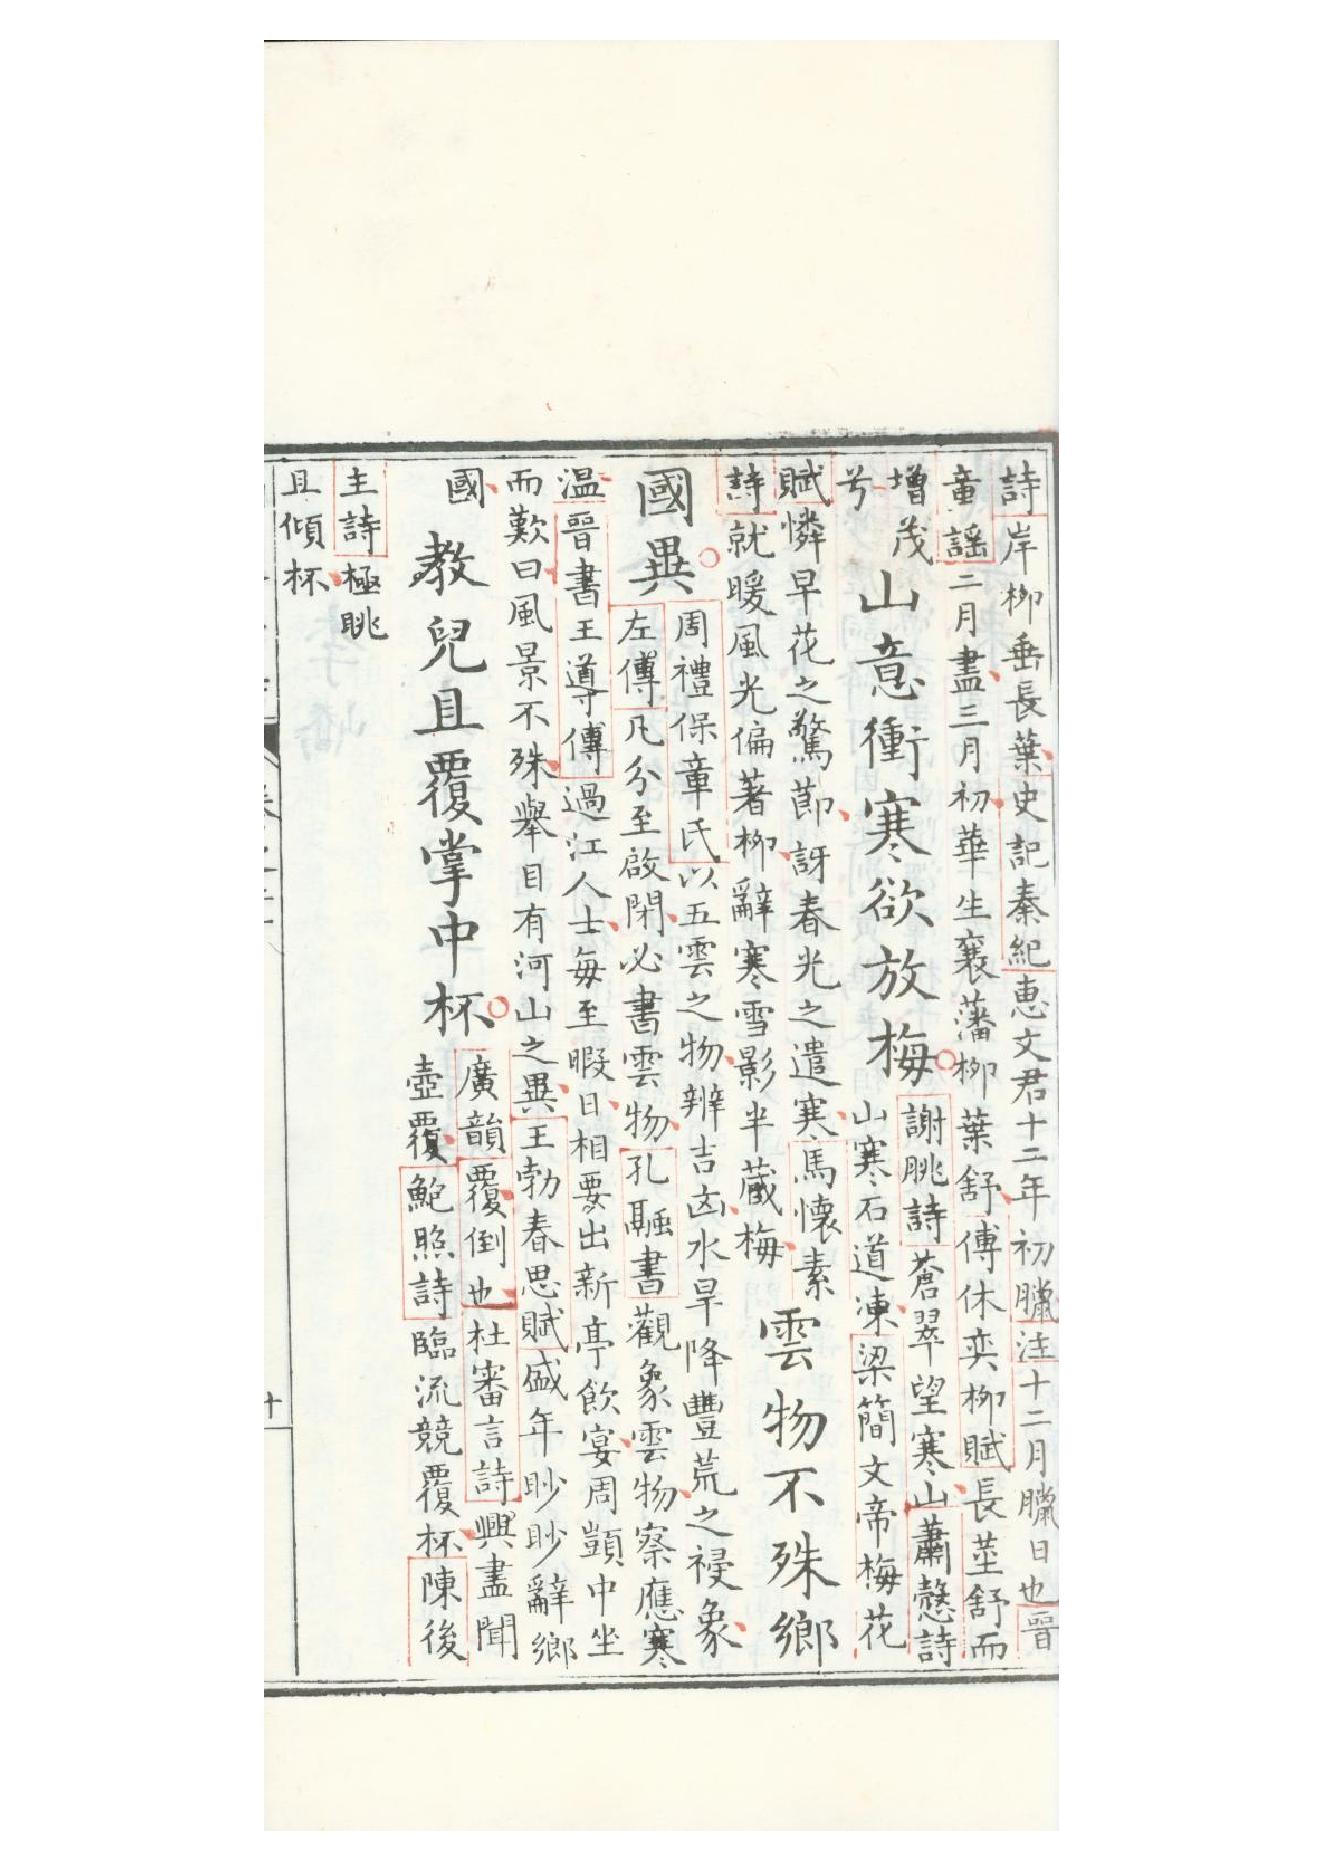 詩岸柳垂長葉史記秦紀惠文君十二年初臘注十二月臘日也晉
童謠二月盡三月初華生襄藩柳葉舒傅休奕柳賦長莖舒而
增茂
兮
山意衝寒欲放梅
謝朓詩蒼翠望寒山蕭慤詩
山寒石道凍梁簡文帝梅花
賦憐早花之驚節訝春光之遣寒馬懷素
詩就暖風光偏著柳辭寒雪影半藏梅
雲物不殊鄉
國異
周禮保章氏以五雲之物辨吉凶水旱降豐荒之祲象
左傳凡分至啟閉必書雲物孔融書觀象雲物察應寒
溫晉書王導傳過江人士每至暇日相要出新亭飲宴周顗中坐
而歎曰風景不殊舉目有河山之異王勃春思賦盛年眇眇辭鄉
國
教兒且覆掌中杯
廣韻覆倒也杜審言詩興盡聞
壺覆鮑照詩臨流競覆杯陳後
主詩極眺
且傾杯